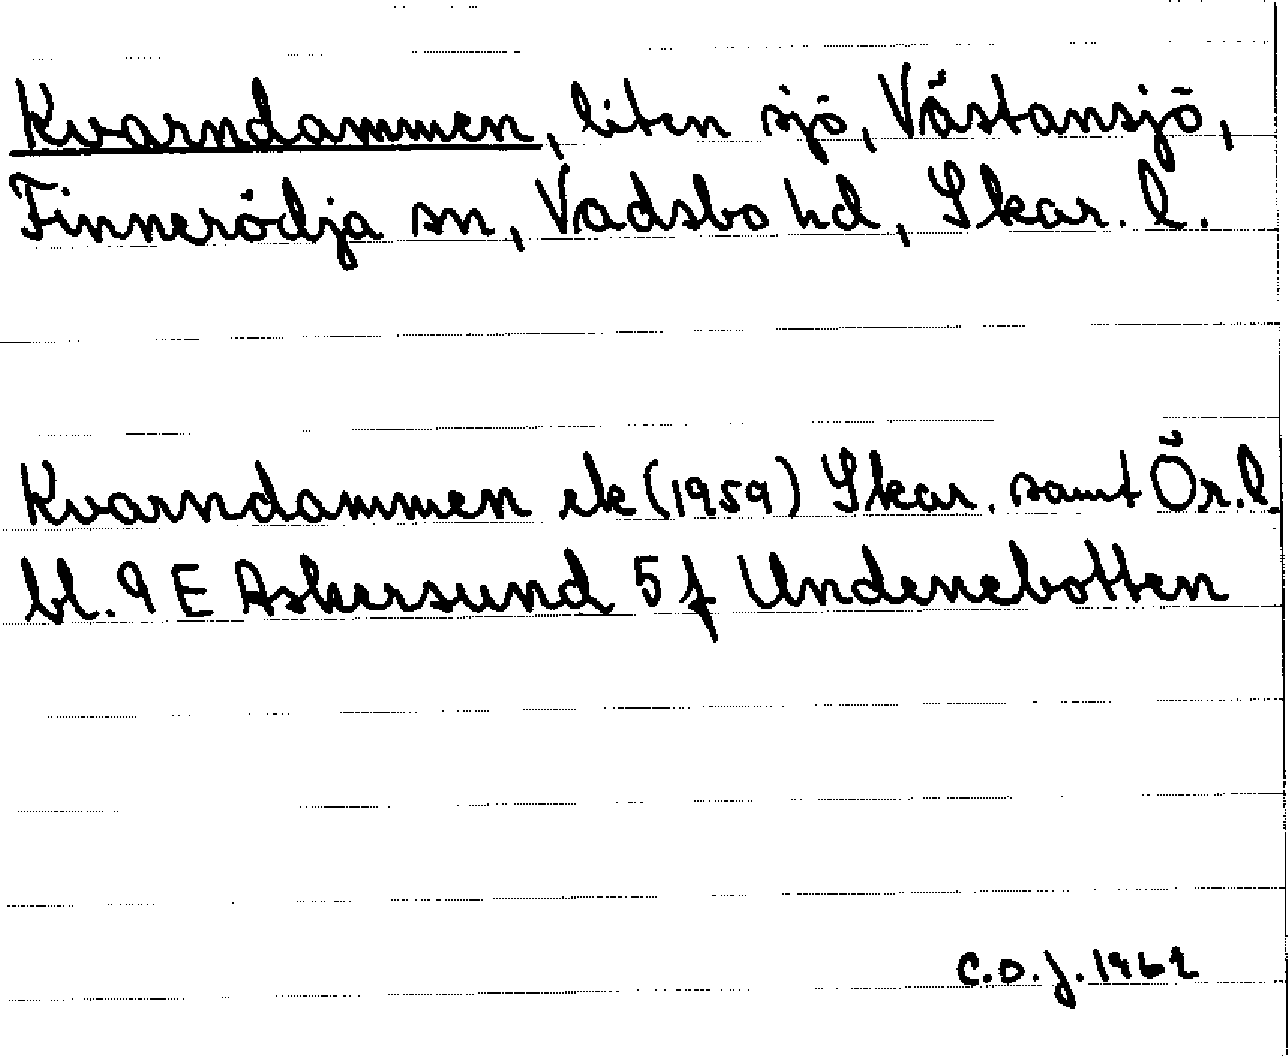 Kvarndammen, liten sjö, Västansjö,
Finnerödja sn, Vadsbo hd, Skar. l.
Kvarndammen ek (1959) Skar. samt Ör. l.
bl. 9 E Askersund 5 f Undenebotten
C.O.J. 1962